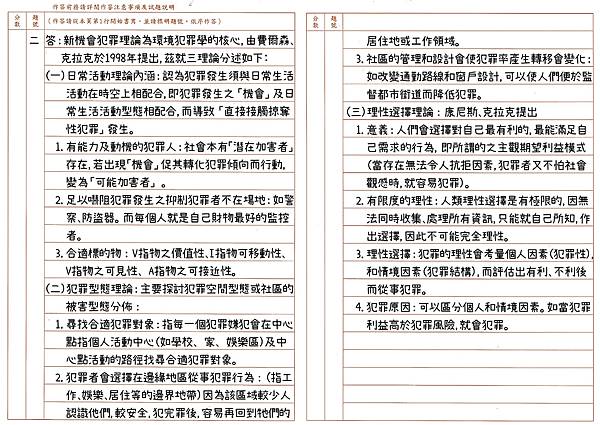 作答前務請詳閱作答注意事項及試題說明
分數
題號
（作答請從本頁第1行開始書寫，並請標明題號，依序作答）
二 答：新機會犯罪理論為環境犯罪學的核心，由費爾森、
克拉克於1998年提出，茲就三理論分述如下：
(一)日常活動理論內涵：認為犯罪發生須與日常生活
活動在時空上相配合，即犯罪發生之「機會」及日
常生活活動型態相配合，而導致「直接接觸掠奪
性犯罪」發生。
1. 有能力及動機的犯罪人：社會本有「潛在加害者」
存在，若出現「機會」，促其轉化犯罪傾向而行動，
變為「可能加害者」。
2. 足以嚇阻犯罪發生之抑制犯罪者不在場地：如警
察、防盜器。而每個人就是自己財物最好的監控
者。
3. 合適標的物：V指物之價值性、I指物可移動性、
V指物之可見性、A指物之可接近性。
(二)犯罪型態理論：主要探討犯罪空間型態或社區的
被害型態分佈：
1. 尋找合適犯罪對象：指每一個犯罪嫌犯會在中心
點指個人活動中心(如學校、家、娛樂區)及中
心點活動的路徑找尋合適犯罪對象。
2. 犯罪者會選擇在邊緣地區從事犯罪行為：(指工
作、娛樂、居住等的邊界地帶)因為該區域較少人
認識他們，較安全，犯完罪後，容易再回到牠們的
分數
題號
居住地或工作領域。
3. 社區的管理和設計會使犯罪率產生轉移會變化：
如改變通動路線和窗戶設計，可以使人們便於監
督都市街道而降低犯罪。
(三)理性選擇理論：康尼斯、克拉克提出
1. 意義：人們會選擇對自己最有利的，最能滿足自
己需求的行為，即所謂的之主觀期望利益模式
(當存在無法令人抗拒因素，犯罪者又不怕社會
觀感時，就容易犯罪)。
2. 有限度的理性：人類理性選擇是有極限的，因無
法同時收集、處理所有資訊，只能就自己所知，作
出選擇，因此不可能完全理性。
3. 理性選擇：犯罪的理性會考量個人因素(犯罪性)，
和情境因素(犯罪結構)，而評估出有利、不利後
而從事犯罪。
4. 犯罪原因：可以區分個人和情境因素。如當犯罪
利益高於犯罪風險，就會犯罪。